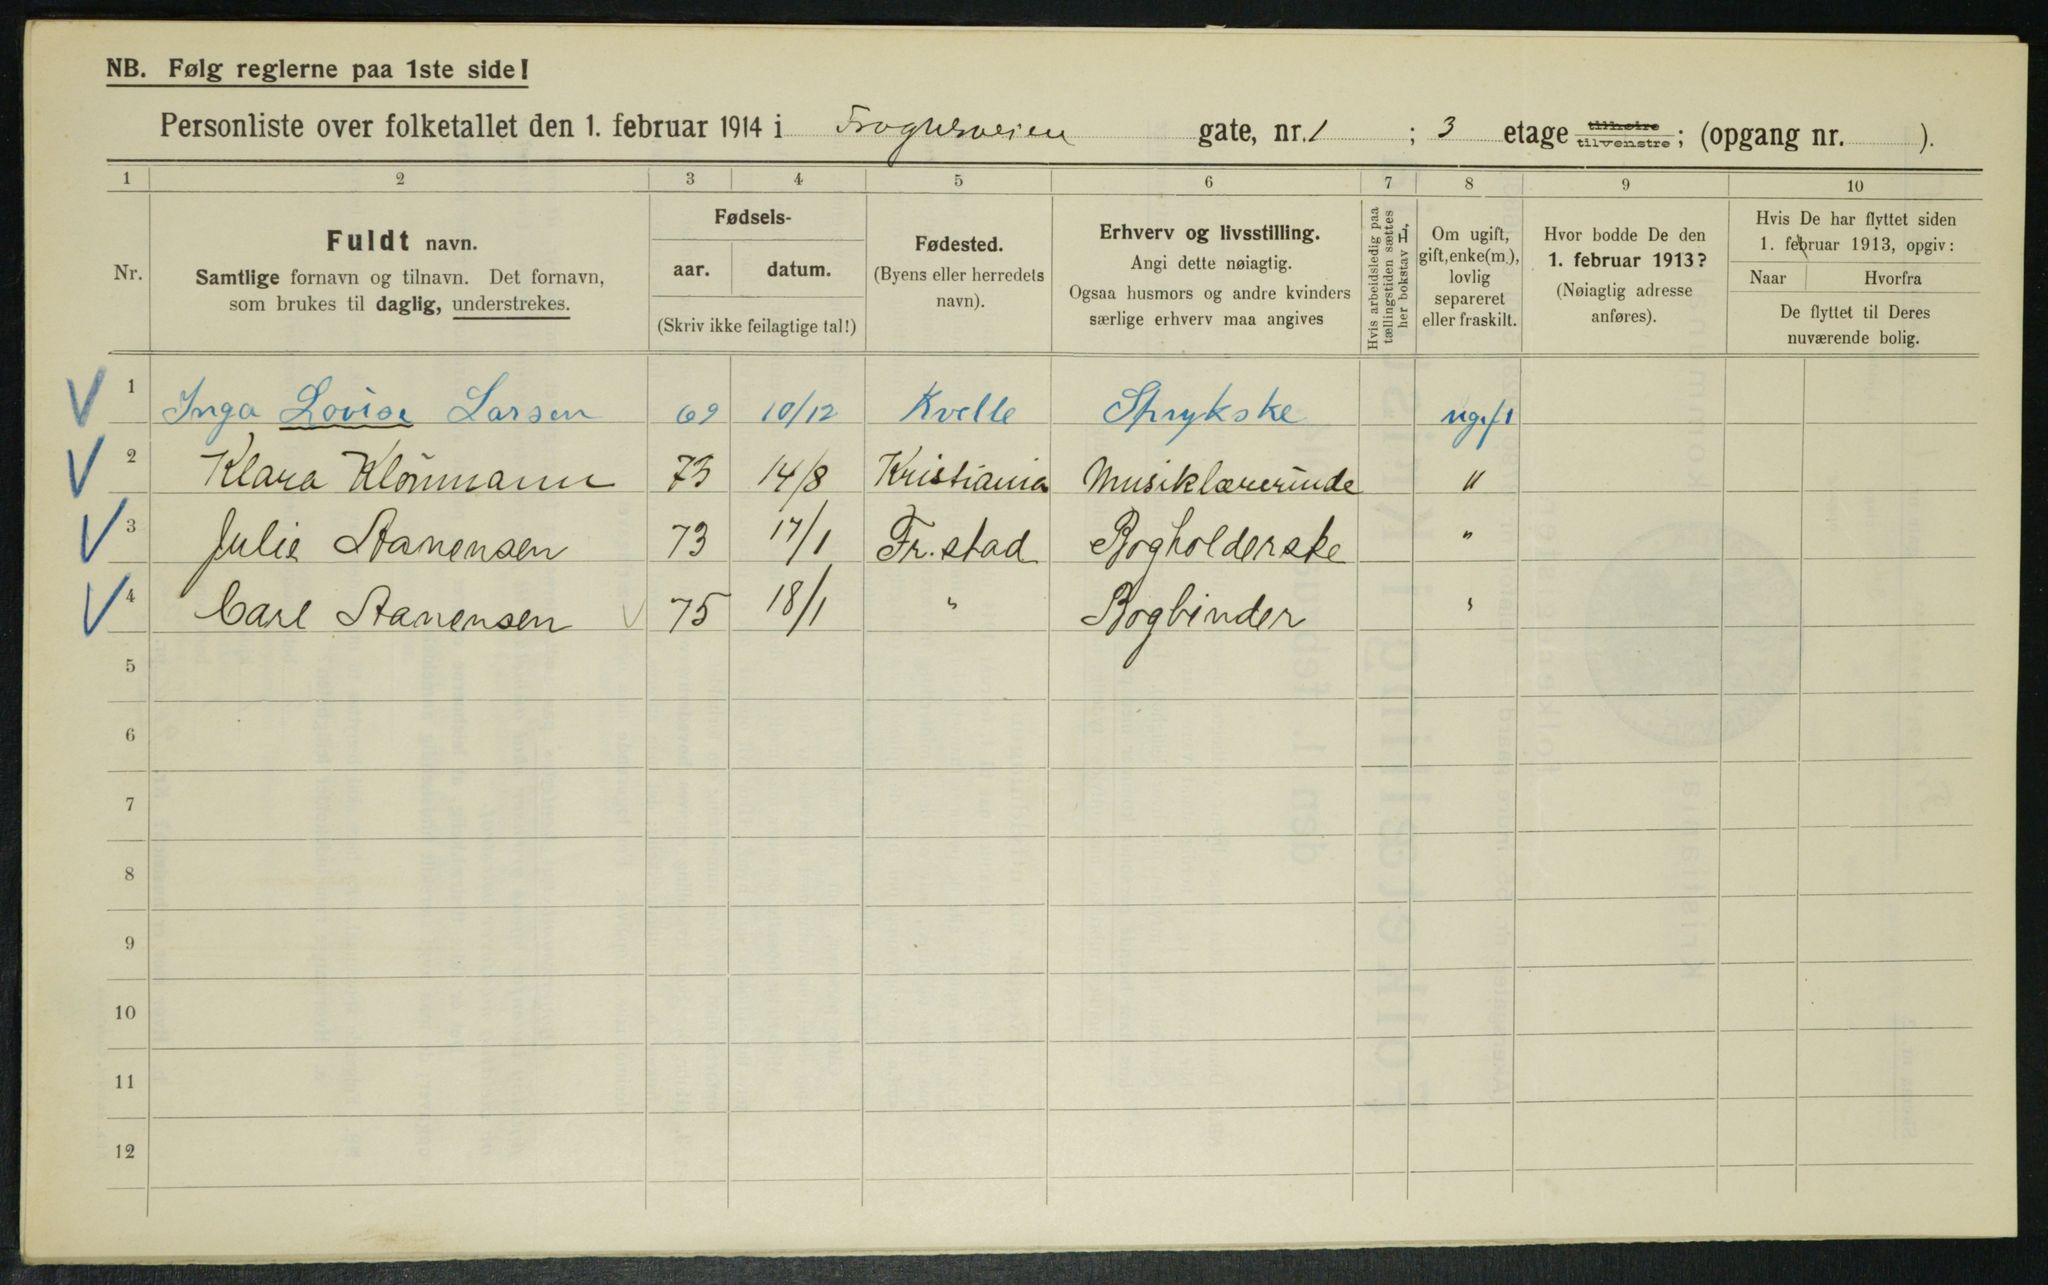 NB. Følg reglerne paa 1ste side!
Personliste over folketallet den 1. februar 1914 i Frognerveien gate, nr. 1 ; 3 etage tilhøire/tilvenstre; (opgang nr. ).
1 2 3 4 5 6 7 8 9 10
Nr.
Fuldt navn.
Samtlige fornavn og tilnavn. Det fornavn,
som brukes til daglig, understrekes.
Fødsels-
aar. datum.
(Skriv ikke feilagtige tal!)
Fødested.
(Byens eller herredets
navn).
Erhverv og livsstilling.
Angi dette nøiagtig.
Ogsaa husmors og andre kvinders
særlige erhverv maa angives
Hvis arbeidsledig paa
tællingstiden sættes
her bokstav L.
Om ugift,
gift, enke(m.),
lovlig
separeret
eller fraskilt.
Hvor bodde De den
1. februar 1913?
(Nøiagtig adresse
anføres).
Hvis De har flyttet siden
1. februar 1913, opgiv:
Naar Hvorfra
De flyttet til Deres
nuværende bolig.
V 1 Inga Lovise Larsen 69 10/12 Kvelle Strykske ugift
V 2 Klara Klönmann 73 14/8 Kristiania Musiklærerinde "
V 3 Julie Aanensen 73 17/1 Fr.stad Bogholderske "
V 4 Carl Aanensen 75 18/1 " Bogbinder "
5
6
7
8
9
10
11
12